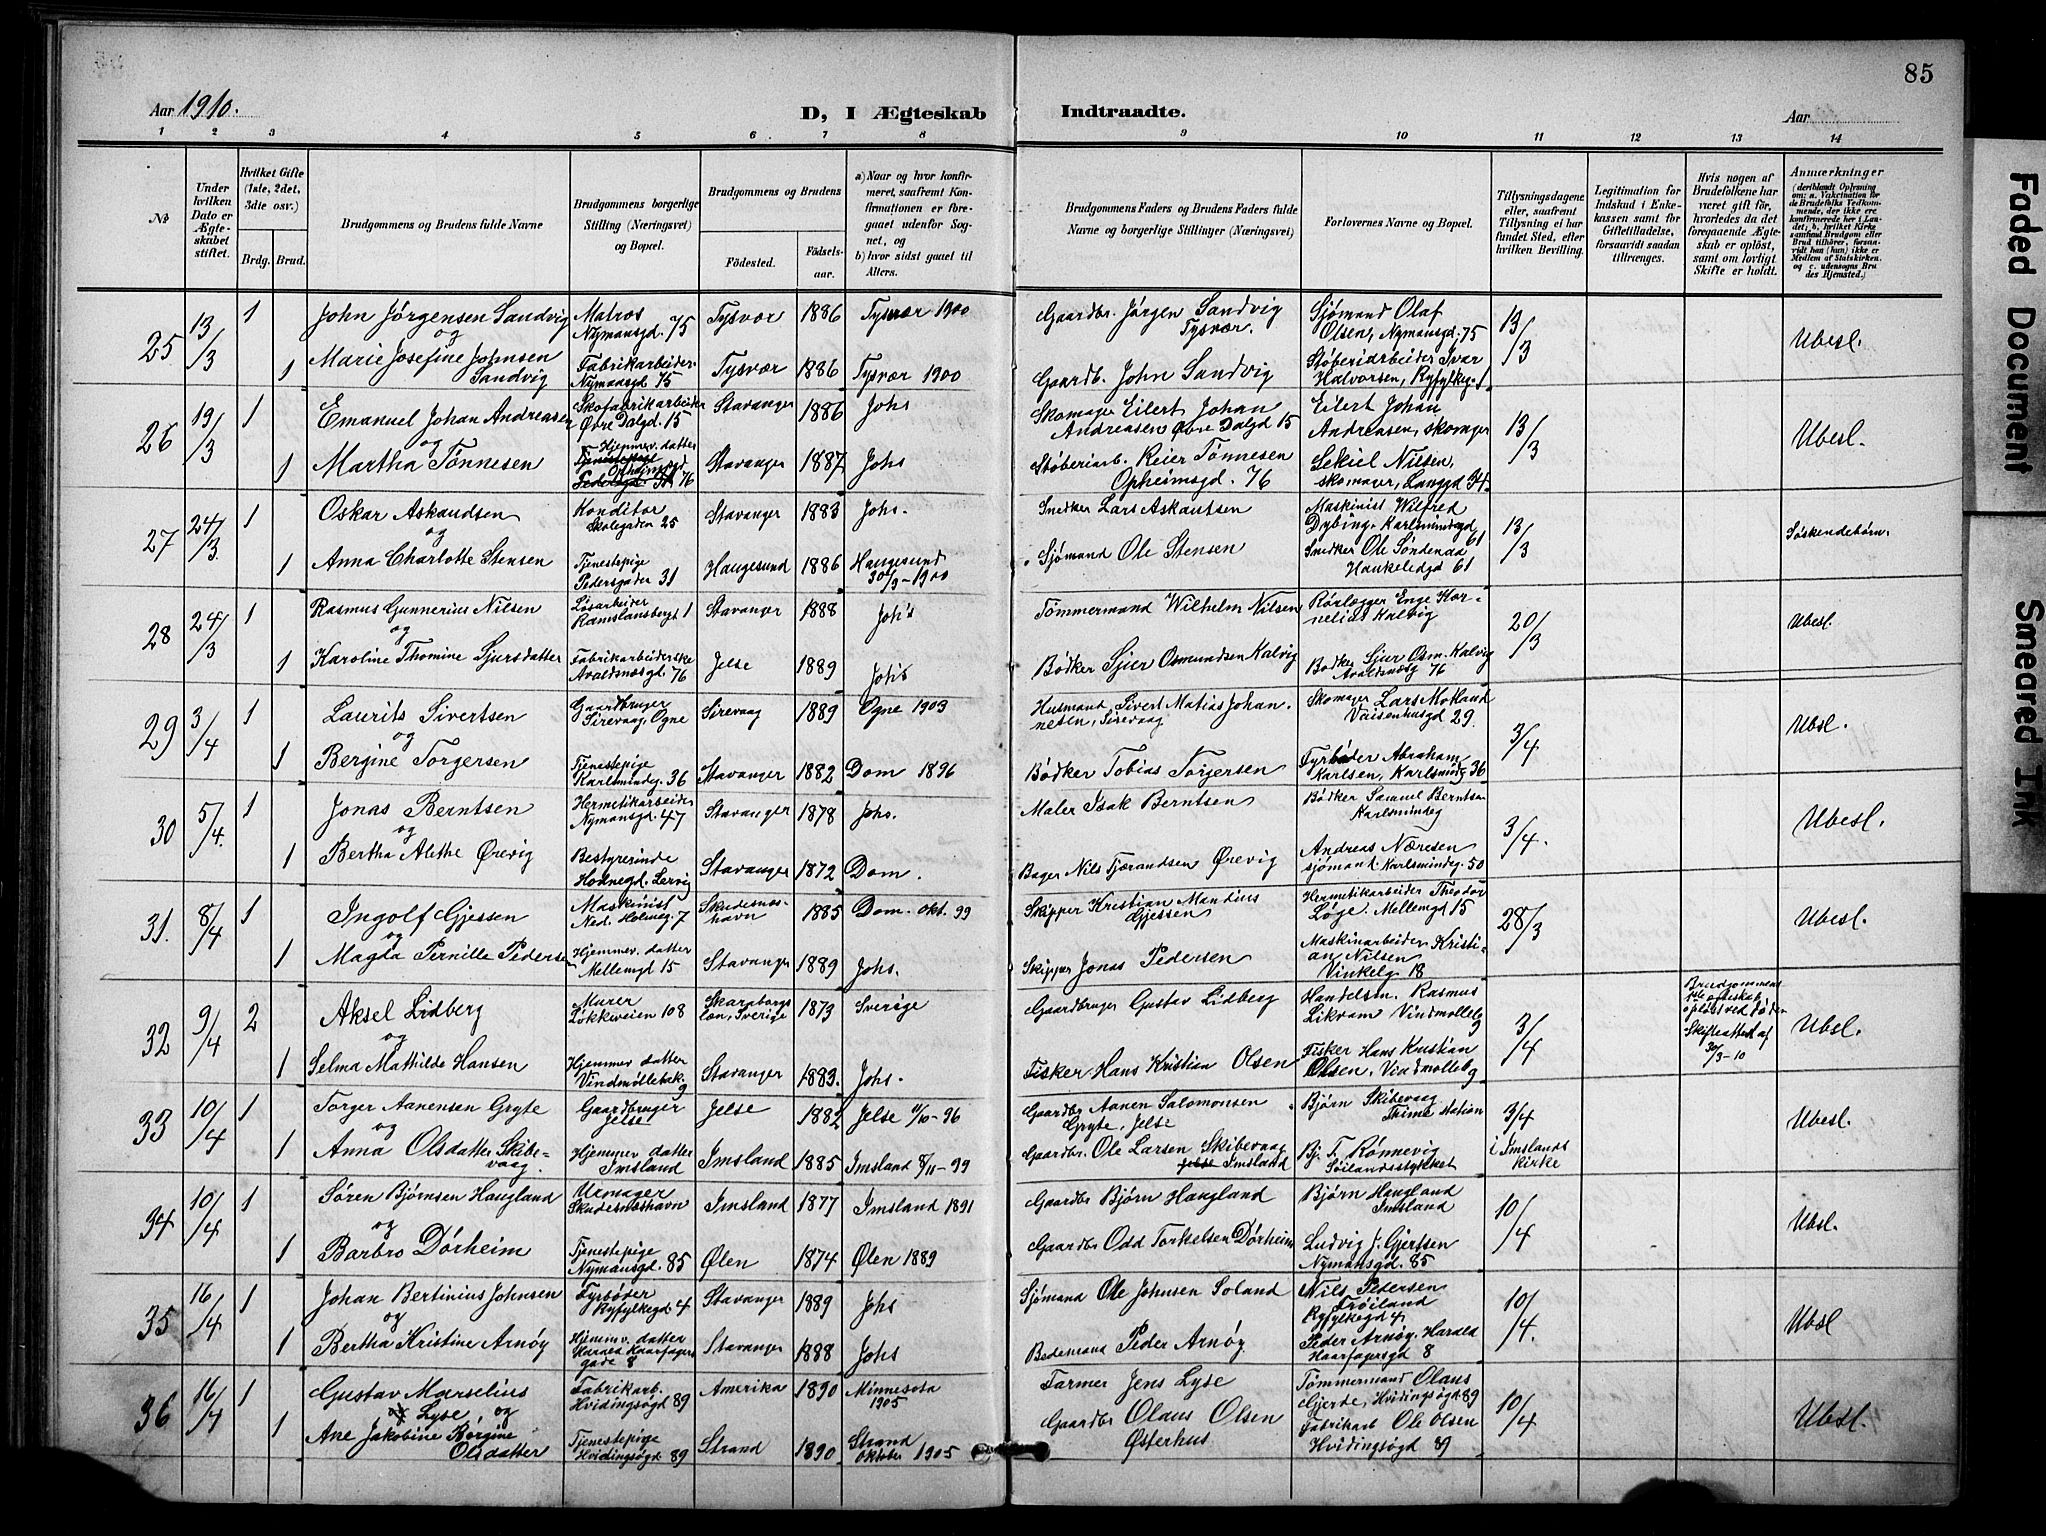 85
Aar 1910.
D, I Ægteskab Indtraadte.
Aar
1 2 3 4 5 6 7 8 9 10 11 12 13 14
№
Under hvilken Dato er Ægteskabet stiftet.
Hvilket Gifte (1ste, 2det, 3die osv.)
Brdg. Brud.
Brudgommens og Brudens fulde Navne
Brudgommens borgerlige Stilling (Næringsvei) og Bopæl.
Brudgommens og Brudens
Födested.
Födselsaar.
a) Naar og hvor konfirmeret, saafremt Konfirmationen er foregaaet udenfor Sognet, og
b) hvor sidst gaaet til Alters.
Brudgommens Faders og Brudens Faders fulde Navne og borgerlige Stillinger (Næringsvei)
Forlovernes Navne og Bopæl.
Tillysningsdagene eller, saafremt Tillysning ei har fundet Sted, efter hvilken Bevilling.
Legitimation for Indskud i Enkekassen samt for Giftetilladelse, forsaavidt saadan tiltrænges.
Hvis nogen af Brudefolkene har været gift før, hvorledes da det foregaaende Ægteskab er oplöst, samt om lovligt Skifte er holdt.
Anmærkninger
(deriblandt Oplysning om: a. Vakcination for de Brudefolks Vedkommende, der ikke ere konfirmerede her i Landet; b. hvilket Kirkesamfund Brudgom eller Brud tilhörer, forsavidt han (hun) ikke er Medlem af Statskirken. og c. udensogns Brudes Hjemsted.)
25 13/3 1 John Jørgensen Sandvig Matros Nymansgd. 75 Tysvær 1886 Tysvær 1900 Gaardbr. Jørgen Sandvig Tysvær. Sjømand Olaf Olsen, Nymansgd. 75 13/3 Ubesl.
og
1 Marie Josefine Johnsen Sandvig Fabrikarbeider Nymansgd 75 Tysvær 1886 Tysvær 1900 Gaardb. John Sandvig Støberiarbeider Ivar Halvorsen, Ryfylkeg. 1
26 19/3 1 Emanuel Johan Andreasen Skofabrikarbeider Øvre Dalgd. 15 Stavanger 1886 Johs Skomager Eilert Johan Andreasen Øvre Dalgd 15 Eilert Johan Andreasen, skomager 13/3 Ubesl.
og
1 Martha Tønnesen Hjemmev. datter Opheimsgd 76 Stavanger 1887 Johs Støberiarb. Reier Tønnesen Opheimsgd. 76 Sekiel Nilsen, skomager, Langgd 34.
27 24/3 1 Oskar Askaudsen Konditor Skolegaden 25 Stavanger 1883 Johs. Snedker Lars Askautsen Maskinist Wilfred Dybing, Karlsmindegd 61 13/3 Søskendebørn.
og
1 Anna Charlotte Stensen Tjenestepige Pedersgaden 31 Haugesund 1886 Haugesund 30/9-1900 Sjømand Ole Stensen Snedker Ole Søndenaa Haukeliegd 61
28 24/3 1 Rasmus Gunnerius Nilsen Løsarbeider Ramslansbergt 1 Stavanger 1888 Joh's Tømmermand Wilhelm Nilsen Rørlægger Enge Kornelius Kalvig 20/3 Ubesl.
og
1 Karoline Thomine Sjursdatter Fabrikarbeiderske Avaldsnæsgd. 76 Jelse 1889 Joh's Bødker Sjur Osmundsen Kalvig Bødker Sjur Osm. Kalvig Avaldsnæsg 76
29 3/4 1 Laurits Sivertsen Gaardbruger Sirevaag, Ogne Sirevaag 1889 Ogne 1903 Husmand Sivert Matias Johannesen, Sirevaag Skomager Lars Motland Vaisenhusgd 29. 3/4 Ubsl.
og
1 Bergine Torgersen Tjenestepige Karlsmindeg. 36 Stavanger 1882 Dom 1896 Bødker Tobias Torgersen Fyrbøder Abraham Karlsen, Karlsmindeg 36
30 5/4. 1 Jonas Berntsen Hermetikarbeider Nymansgd. 47 Stavanger 1878 Johs. Maler Isak Berntsen Bødker Samuel Berntsen Karlsmindeg 3/4. Ubesl.
og
1 Bertha Alethe Ørevig Bestyrerinde Hodnegd. Lervig Stavanger 1872 Dom. Bager Nils Tjærandsen Ørevig Andreas Næresen sjømand. Karlsmindeg. 50
31. 8/4 1 Ingolf Gjessen Maskinist Ned. Holmeg. 7 Skudesneshavn 1885 Dom. okt. 99 Skipper Kristian Mandius Gjessen Hermetikarbeider Theodor Løge. Mellemgd 15 28/3 Ubesl.
og
1 Magda Pernille Pedersen Hjemmev. datter Mellemgd 15 Stavanger 1889 Johs. Skipper Jonas Pedersen Maskinarbeider Kristian Nilsen Vinkelg 18
32 9/4 2 Aksel Lidberg Murer Løkkeveien 108 Skaraborgs læn, Sverige 1873 Sverige Gaardbruger Gustav Lidberg Handelsm. Rasmus Likvam Vindmølleb 9 3/4 Brudgommens 1ste ægteskab opløst ved døden Skifteattest af 30/3-10 Ubsl.
og
1 Selma Mathilde Hansen Hjemmev datter Vindmøllebak. 9 Stavanger 1883. Johs. Fisker Hans Kristian Olsen Fisker Hans Kristian Olsen, Vindmølleb 9
33 10/4 1 Torger Aanensen Gryte Gaardbruger Jelse Jelse 1882 Jelse 4/10-96 Gaardbr Aanen Salomonsen Gryte, Jelse Bjørn Skibevaag Trime station 3/4 i Imslands kirke Ubesl.
og
1 Anna Olsdatter Skibevaag. Hjemmev datter Imsland Imsland 1885 Imsland 8/11-99 Gaardbr. Ole Larsen Skibevaag Jelse Imsland Bj. T. Rønnevig Søilandsstykket
34 10/4 1 Søren Bjørnsen Haugland Urmager Skudesneshavn Imsland 1877 Imsland 1891 Gaardbr Bjørn Haugland Bjørn Haugland Imsland 10/4 Ubsl.
og
1 Barbro Dørheim Tjenestepige Nymansgd. 85 Ølen 1874 Ølen 1889 Gaardbr Odd Torkelsen Dørheim Ludvig J. Gjertsen Nymansgd. 85
35 16/4 1 Johan Bertinius Johnsen Fyrbøder Ryfylkegd 4 Stavanger 1889 Johs Sjømand Ole Johnsen Soland Nils Pedersen Trøiland Ryfylkegd 4 10/4. Ubsl
og
1 Bertha Kristine Arnøy Hjemmev. datter Harald Haarfagersgade 8 Stavanger 1888 Johs Bedemand Peder Arnøy Peder Arnøy, Harald Haarfagersgd 8
36 16/4 1 Gustav Marselius Lyse og Fabrikarb. Hvidingsøgd 89 Amerika 1890 Minnesota 1905 Farmer Jens Lyse Tømmermand Olaus Gjerde, Hvidingsøgd. 89 10/4 Ubesl.
1 Ane Jakobine Bergine Olsdatter Tjenestepige Hvidingsøgd. 89 Strand 1890 Strand Oktober 1905 Gaardbr Olaus Olsen Østerhus Fabrikarb Ole Olsen Hvidingsøgd 89
Faded Document
Smeared Ink